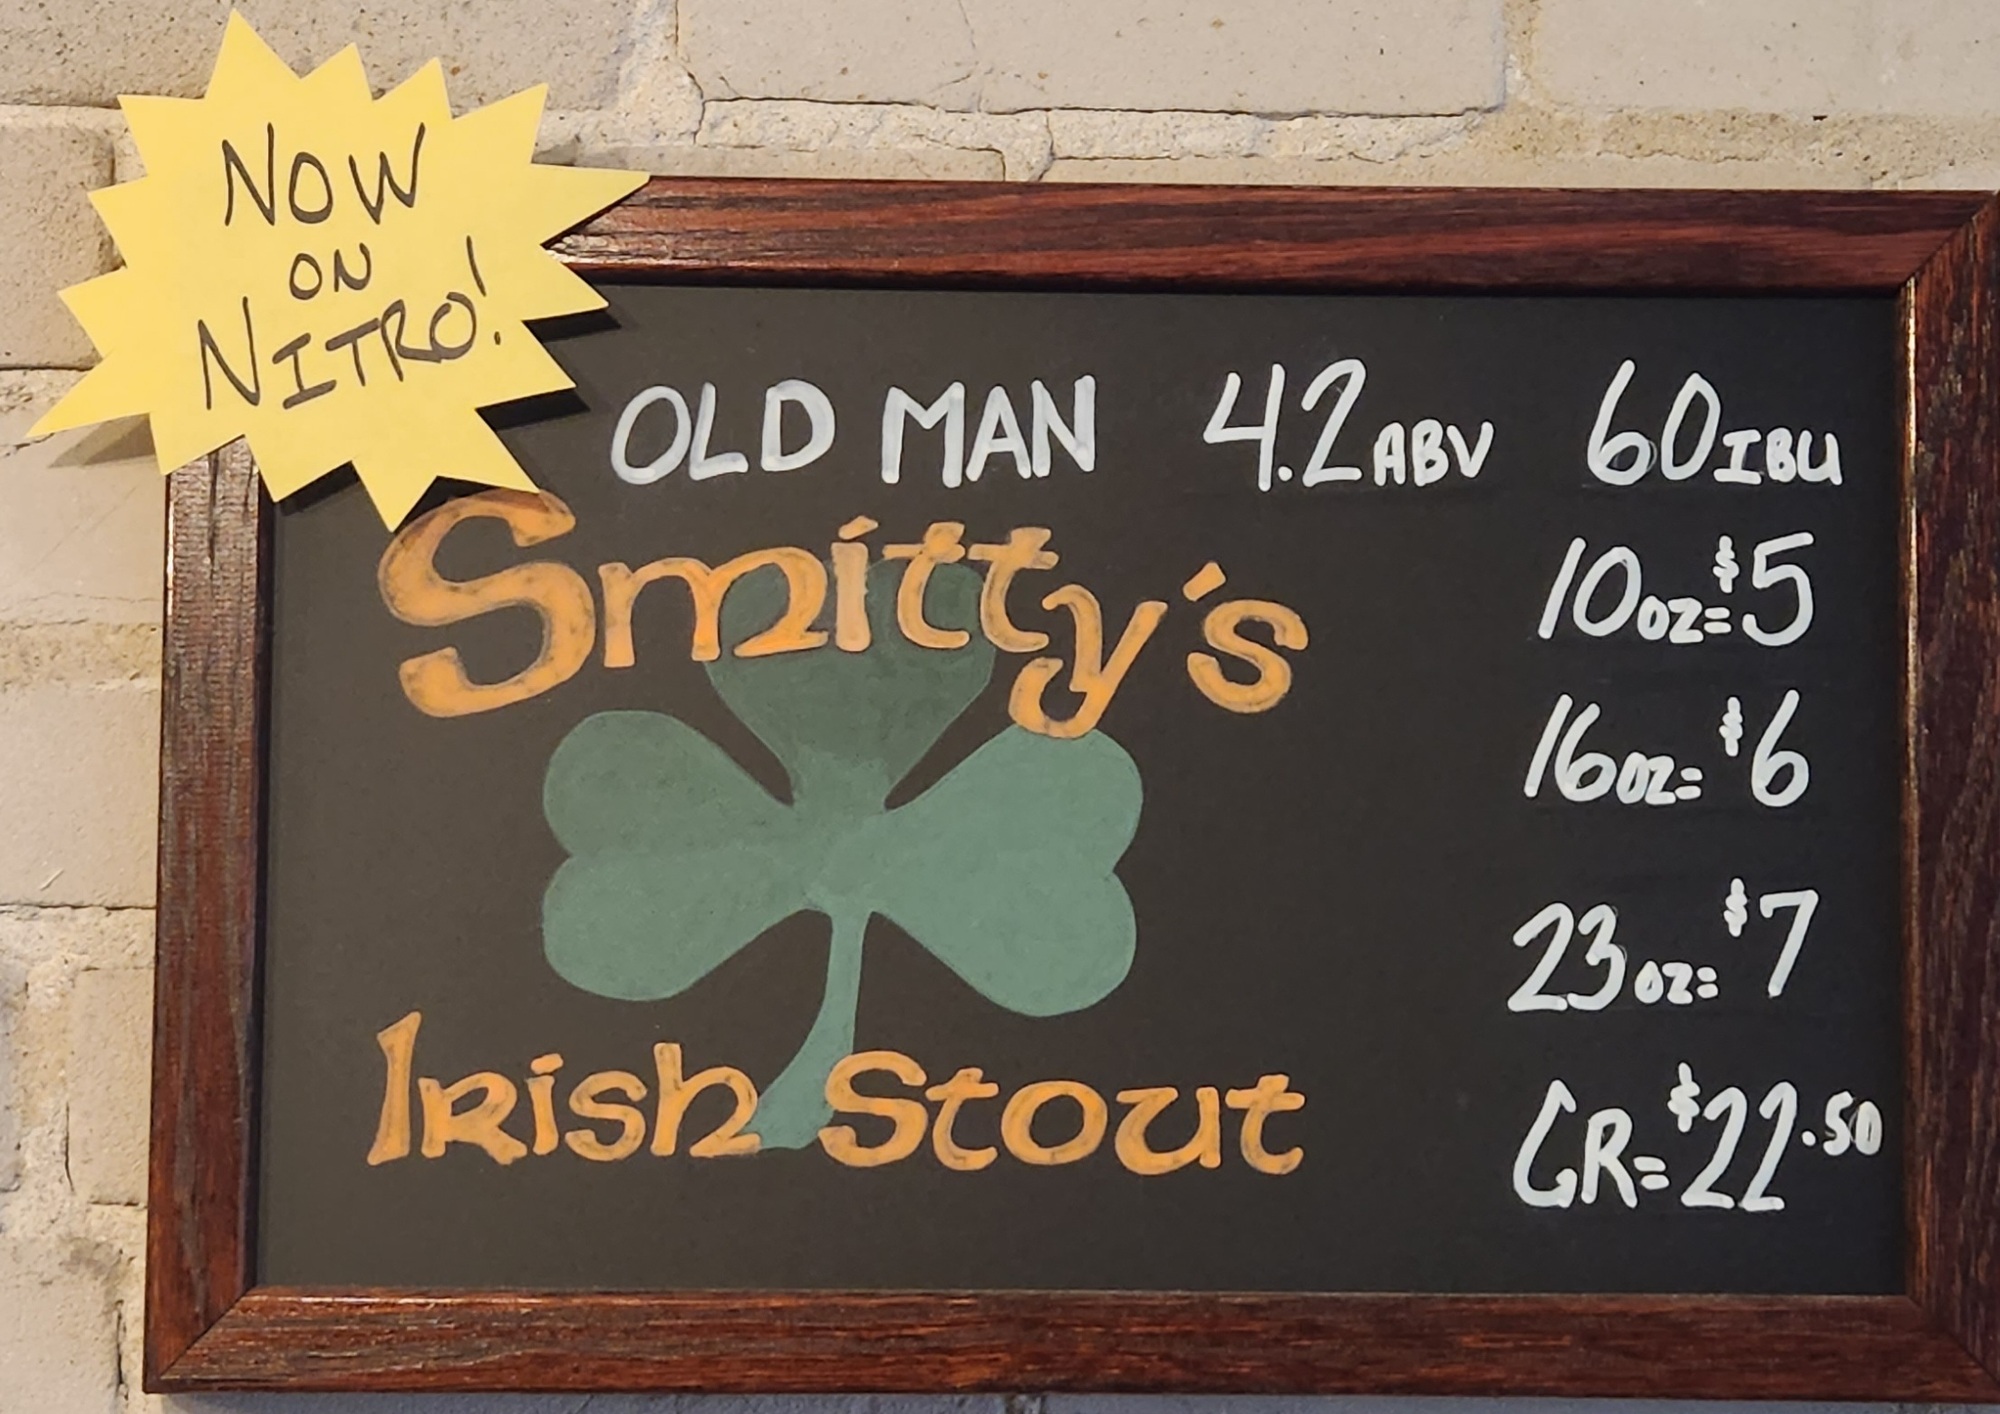 NOW
ON
NITRO!
OLD MAN 4.2 ABV 60 IBU
Smitty's
10oz=$5
16oz=$6
23oz=$7
Irish Stout
GR=$22.50